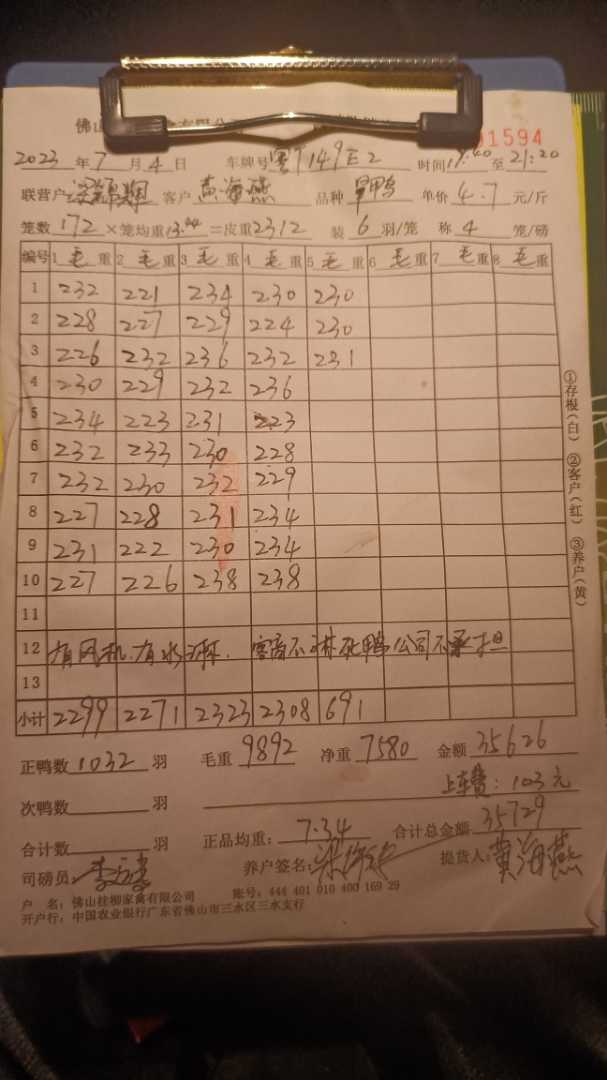 佛山
01594
2023 年 7 月 4 日 车牌号 粤T149E2 时间 19:40 至 21:20
联营户 客户 黄海燕 品种 单价 4.7 元/斤
笼数 172 × 笼均重 13.44 = 皮重 2312 装 6 羽/笼 称 4 笼/磅
编号 1 毛 重 2 毛 重 3 毛 重 4 毛 重 5 毛 重 6 毛 重 7 毛 重 8 毛 重
1 232 221 234 230 230
2 228 227 229 224 230
3 226 232 236 232 231
4 230 229 232 236
5 234 223 231 223
6 232 233 230 228
7 232 230 232 229
8 227 228 231 234
9 231 222 230 234
10 227 226 238 238
11
12 有风机.有水淋. 客商不淋死鸭公司不承担
13
小计 2299 2271 2323 2308 691
正鸭数 1032 羽 毛重 9892 净重 7580 金额 35626
上车费: 103元
次鸭数 羽
合计数 羽 正品均重: 7.34 合计总金额 35729
司磅员 养户签名: 提货人: 黄海燕
户 名: 佛山桂柳家禽有限公司 账号: 444 401 010 400 169 29
开户行: 中国农业银行广东省佛山市三水区三水支行
①存根(白) ②客户(红) ③养户(黄)